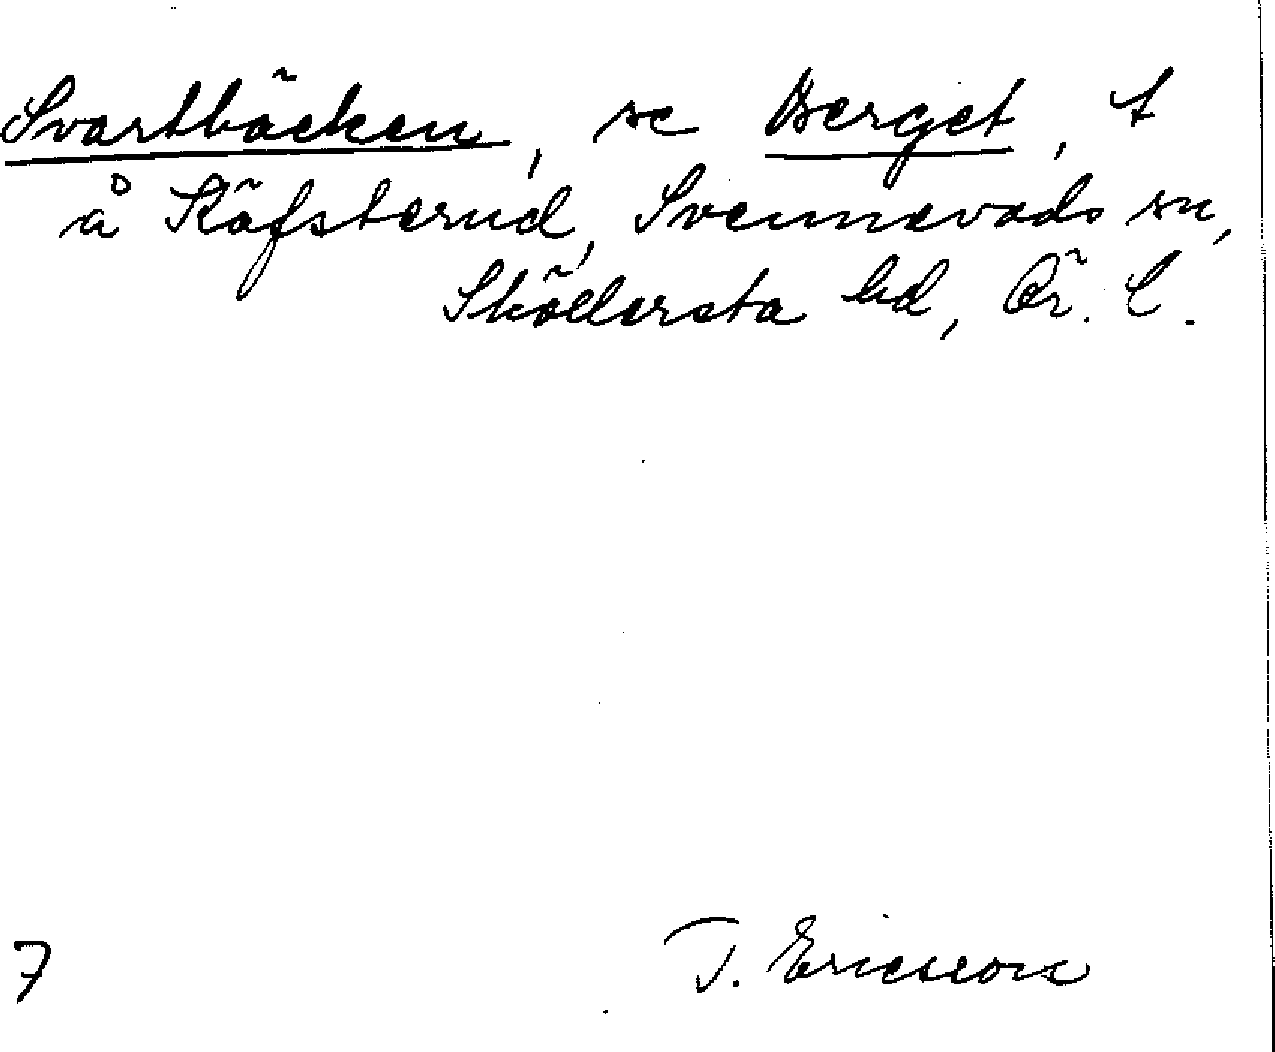 Svartbäcken, se Berget, t
å Käfsterud, Svennevads sn,
Sköllersta hd, Ör. l.
7 T. Ericsson